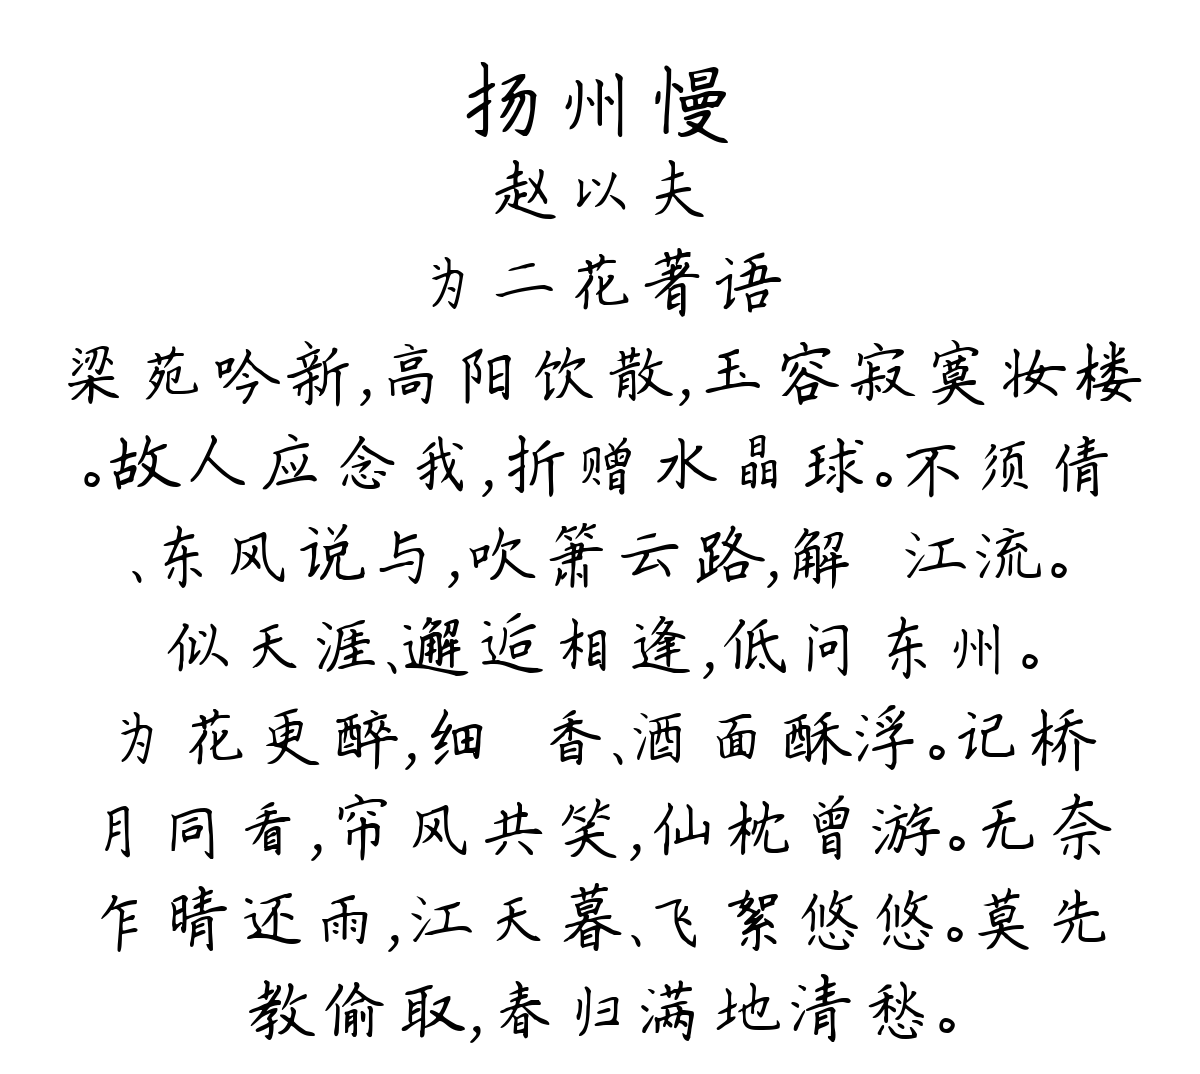 扬州慢
赵以夫
为二花著语
梁苑吟新,高阳饮散,玉容寂寞妆楼
。故人应念我,折赠水晶球。不须倩
、东风说与,吹箫云路,解 江流。
似天涯、邂逅相逢,低问东州。
为花更醉,细 香、酒面酥浮。记桥
月同看,帘风共笑,仙枕曾游。无奈
乍晴还雨,江天暮、飞絮悠悠。莫先
教偷取,春归满地清愁。